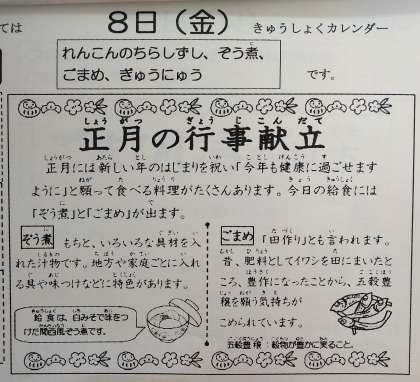 ては
8日（金）
きゅうしょくカレンダー
れんこんのちらしずし、ぞう煮、
ごまめ、ぎゅうにゅう
です。
正月の行事献立
正月には新しい年のはじまりを祝い「今年も健康に過ごせます
ように」と願って食べる料理がたくさんあります。今日の給食には
「ぞう煮」と「ごまめ」が出ます。
ぞう煮 もちと、いろいろな具材を入
れた汁物です。地方や家庭ごとに入れ
る具や味つけなどに特色があります。
給食は、白みそで味をつ
けた関西風ぞう煮です。
ごまめ 「田作り」とも言われます。
昔、肥料としてイワシを田にまいたと
ころ、豊作になったことから、五穀豊
穣を願う気持ちが
こめられています。
五穀豊穣：穀物が豊かに実ること。